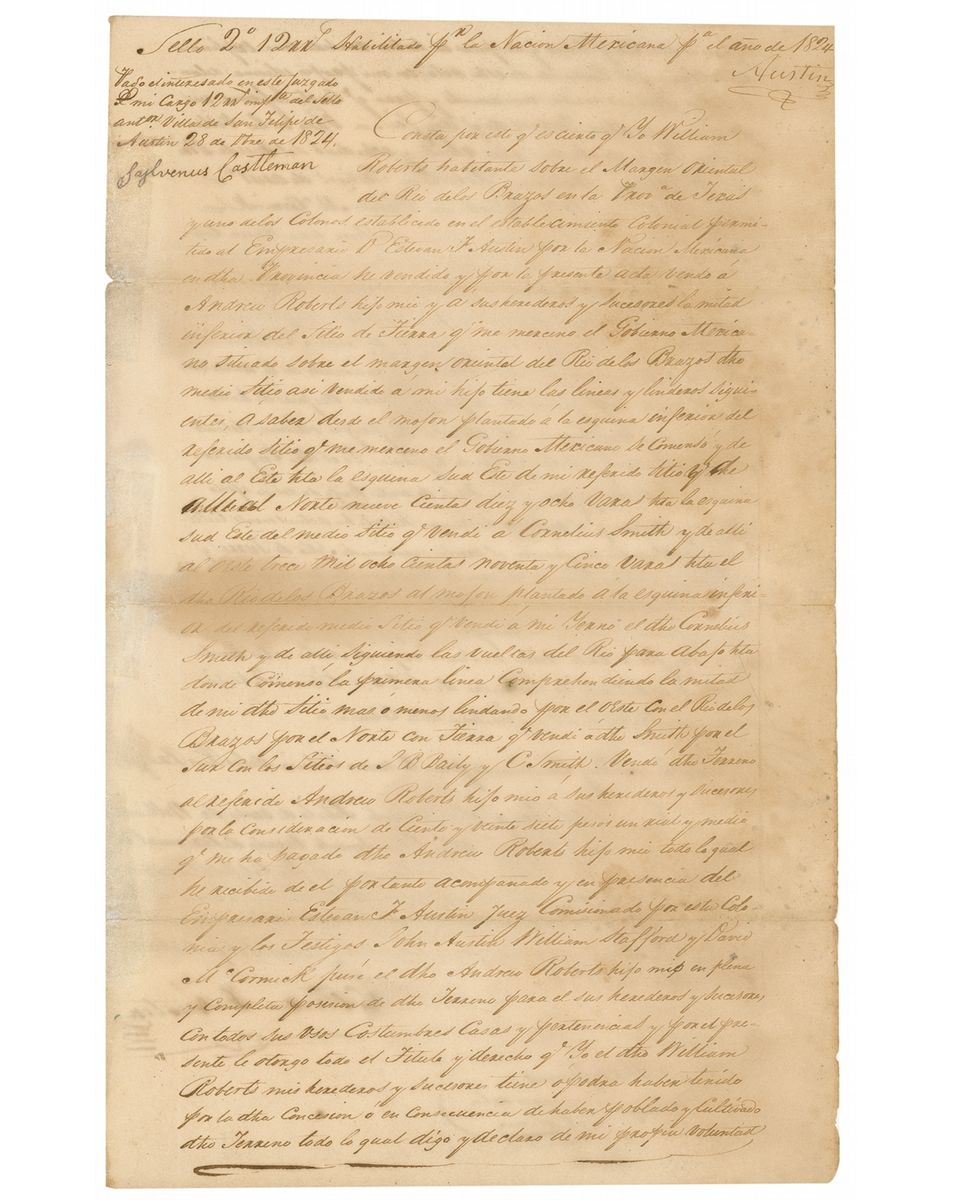 Sello 2º 12rr^s Habilitado p^r la Nacion Mexicana p^a el año de 1824
Austin
Pago el interesado en este Juzgado
de mi Cargo 12rr^s imp^te del Sello
ant^or. Villa de San Felipe de
Austin 28 de Obre de 1824.
Sylvenus Castleman
Consta por este q^e es cierto q^e Yo William
Roberts habitante sobre el Margen Oriental
del Rio de los Brazos en la Prov^a de Texas
y uno de los Colonos establecido en el establecimiento Colonial permi-
tido al Empresario D^n Estevan F. Austin por la Nacion Mexicana
en dha Provincia he vendido y por la presente acta vendo á
Andrew Roberts hijo mio y a sus herederos y sucesores la mitad
inferior del Sitio de Tierra q^e me mercenó el Gobierno Mexica-
no situado sobre el margen oriental del Rio de los Brazos dho
medio sitio asi vendido á mi hijo tiene las lineas y linderos sigui-
entes, a saber desde el mojon plantado á la esquina inferior del
referido sitio q^e me mercenó el Gobierno Mexicano se Comensó y de
alli al Este hta la esquina Sud Este de mi referido sitio y de
alli al Norte nueve Cientas diez y ocho Varas hta la esquina
Sud Este del medio sitio q^e vendi á Cornelius Smith y de alli
al Oeste trece Mil ocho Cientas noventa y Cinco Varas hta el
dho Rio de los Brazos al mojon plantado a la esquina inferi-
or del referido medio Sitio q^e vendi á mi Yerno el dho Cornelius
Smith y de alli siguiendo las vueltas del Rio para Abajo hta
donde Comensó la primera linea Comprehendiendo la mitad
de mi dho Sitio mas ó menos lindando por el Oeste con el Rio de los
Brazos por el Norte con Tierra q^e vendi á dho Smith por el
Sur con los Sitios de J B Baily y C Smith. Vendo dho Terreno
al referido Andrew Roberts hijo mio á sus herederos y sucesores
por la consideracion de Ciento y veinte siete pesos un rial y medio
q^e me ha pagado dho Andrew Roberts hijo mio todo lo qual
he recibido de el por tanto acompañado y en presencia del
Empresari Estevan F Austin Juez Comisionado por esta Colo-
nia y los Testigos John Austin William Stafford y David
M^cCormick pusé el dho Andrew Roberts hijo mio en plena
y Completa posesion de dho Terreno para el sus herederos y sucesores
con todos sus Usos Costumbres Casas y pertenencias y por el pre-
sente le otorgo todo el Titulo y derecho q^e Yo el dho William
Roberts mis herederos y sucesores tiene ó podra haber tenido
por la dha Concesion ó en Consecuencia de haber poblado y Cultivado
dho Terreno todo lo qual digo y declaro de mi propia voluntad,